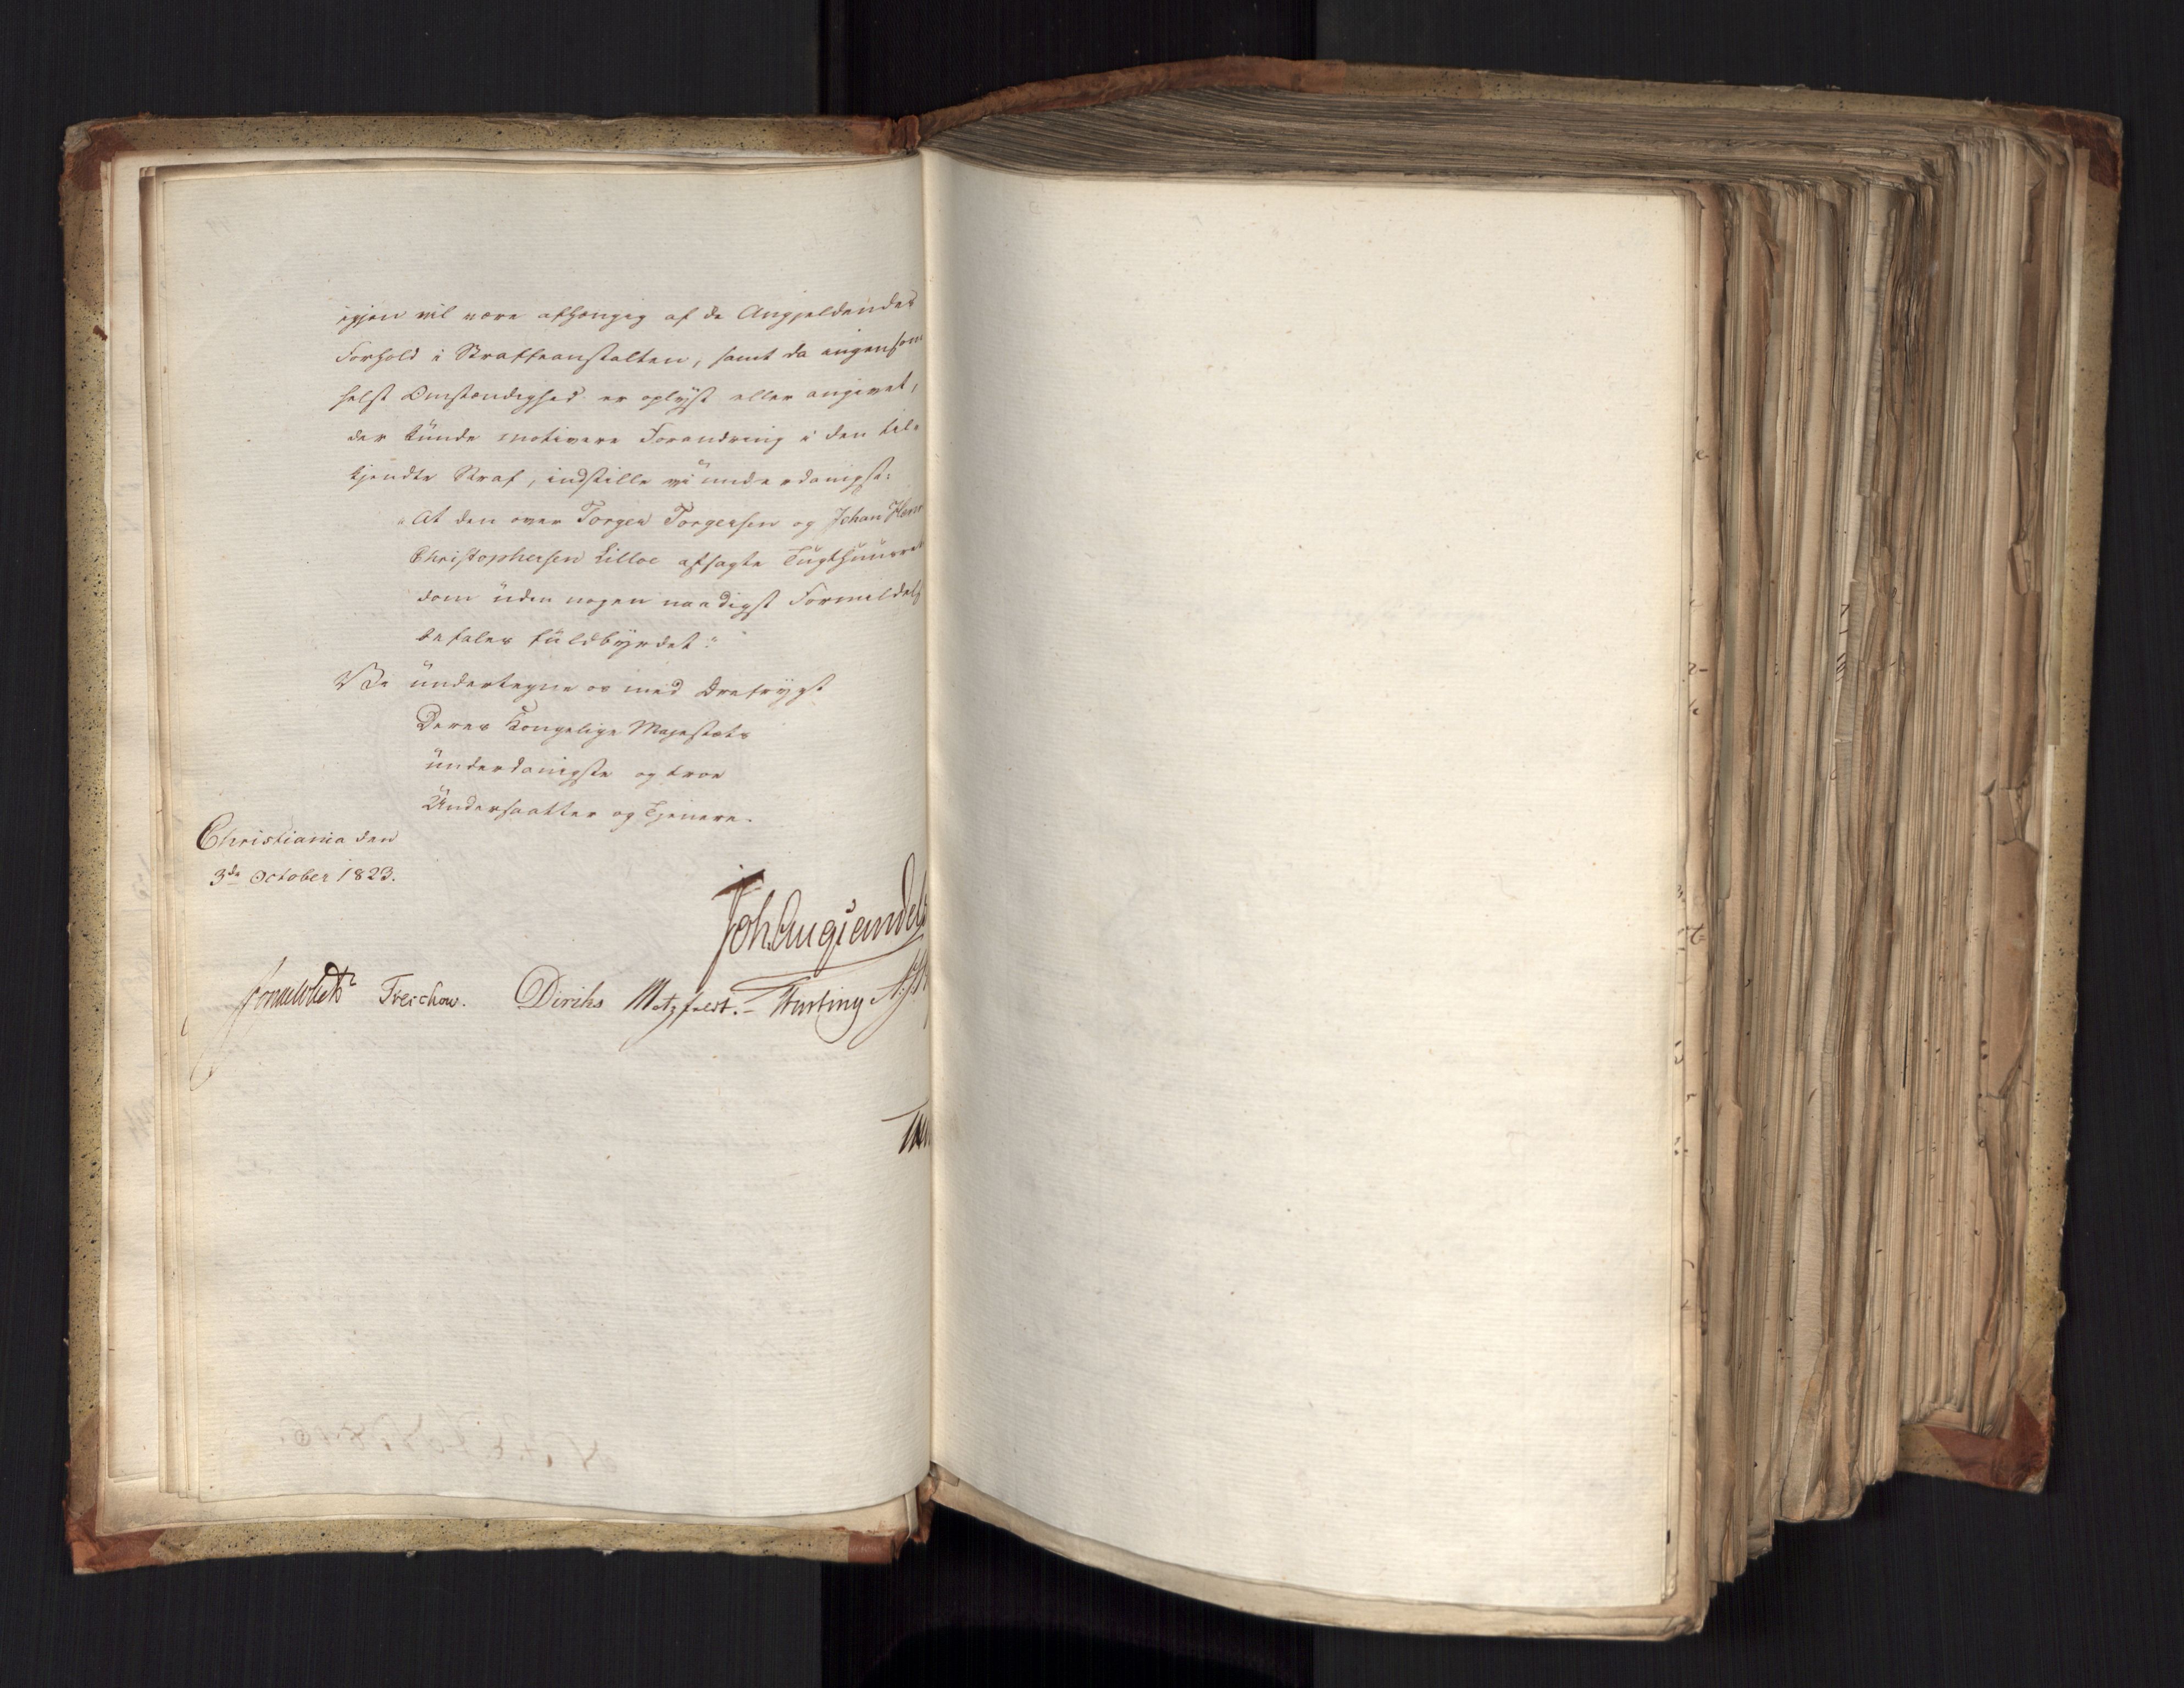 igjen vil være afhængig af de Angjeldendes
Forhold i Straffeanstalten, samt da ingensom
helst Omstændighed er oplyst eller angivet,
der kunde motivere Forandring i den til-
kjendte Straf, indstille vi underdanigst:
"At den over Torger Torgersen og Johan Henr
Christophersen Lilloe afsagte Tugthuus
dom uden nogen naadigst Formildels
befales fuldbyrdet:"
Vi undertegne os med Dybfrygt
Deres Kongelige Majestæts
underdanigste og troe
Undersaatter og Tjenere.
Christiania den
3de October 1823.
Joh. Aug: Sandels
Sommerhielm Treschow. Diriks Motzfeldt. Fasting